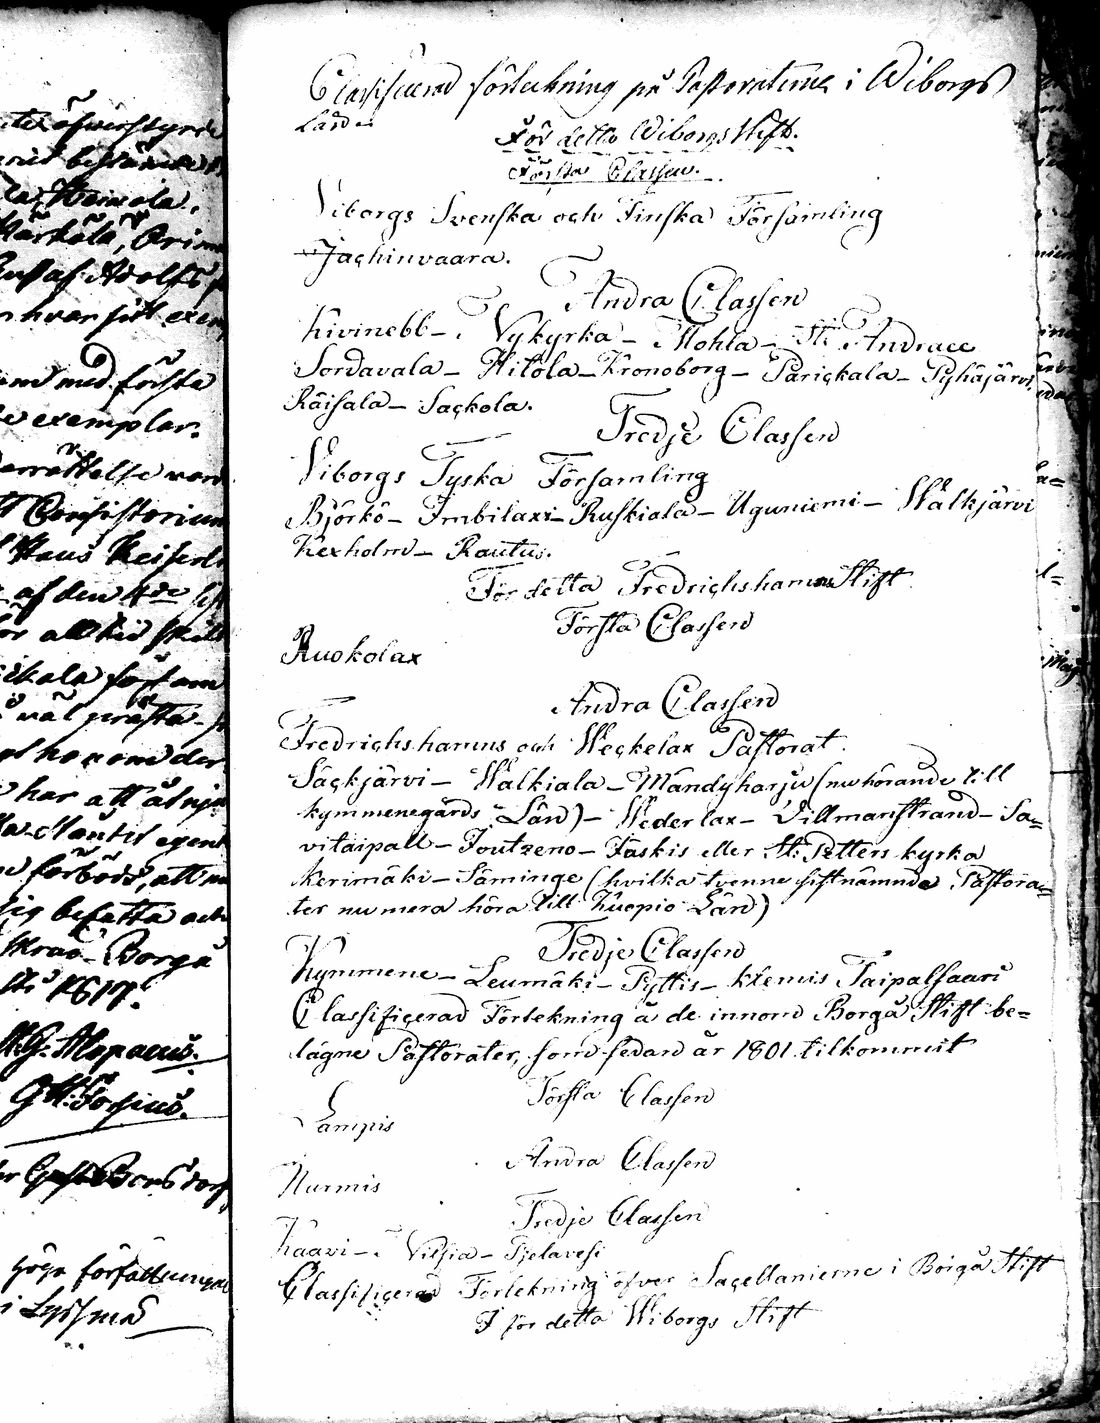 ia Heinola,
Härkölä, Orim
Gustaf Adolfs p
n hvar sitt exem
med första
exemplar.
errättelse vard
tt Consistorium
Hans Keiserl
af den 4de
för alltid
ikala församl
har att åtnju
förböd, att
sig befatta och
Borgå
1817.
M. G: Alopaeus.
G H: Forsius.
höga författningar
i Lyssmä
Classificerad förtekning på Pastoraterne i Wiborgs
Län
För detta Wiborgs Stift.
Första Classen.
Viborgs Svenska och Finska Församling
Jachimvaara.
Andra Classen
Kivinebb - Nykyrka - Mohla - St: Andraee
Sordavala - Hitola - Kronoborg - Parickala - Pyhäjärvi
Räisala - Sackola.
Tredje Classen
Viborgs Tyska Församling
Björkö - Imbilaxi - Ruskiala - Uguniemi - Walkjärvi
Kexholm - Rautus.
För detta Fredrichshamns Stift
Första Classen
Ruokolax
Andra Classen
Fredrichshamns och Weckelax Pastorat.
Säckjärvi - Walkiala - Mändyharju (nu hörande till
kymmenegårds Län) - Wederlax - Villmanstrand - Sa=
vitaipall - Joutzeno - Jäskis eller St: Petters kyrka
Kerimäki - Säminge (hvilka tvenne sistnämnde Pastora=
ter numera höra till Kuopio Län)
Tredje Classen
Kymmene - Leumäki - Pyttis - Klemis Taipalsaari
Classificerad Förtekning å de innom Borgå Stift be=
lägne Pastorater, som sedan år 1801 tilkommit
Första Classen
Lampis
Andra Classen
Nurmis
Tredje Classen
Kaavi - Vilsia - Pielavesi
Classificerad Förtekning öfver Sacellanierne i Borgå Stift
I för detta Wiborgs Stift